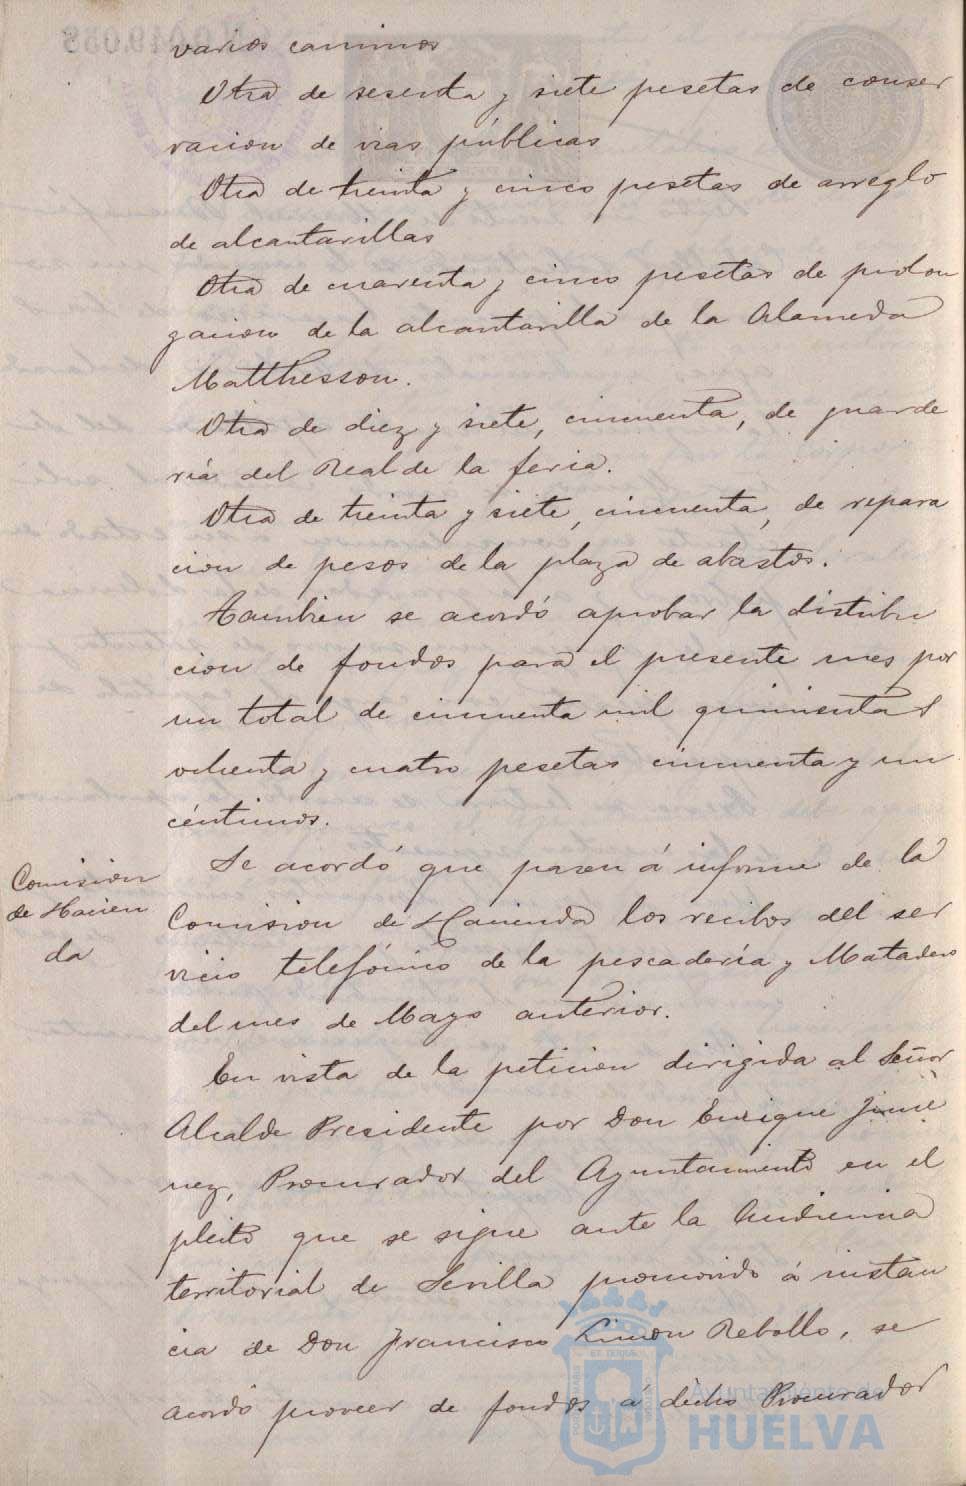 varios caminos
Otra de sesenta y siete pesetas de conser
vacion de vias públicas
Otra de treinta y cinco pesetas de arreglo
de alcantarillas
Otra de cuarenta y cinco pesetas de prolon
gacion de la alcantarilla de la Alameda
Matthesson.
Otra de diez y siete, cincuenta, de guarde
ría del Real de la feria.
Otra de treinta y siete, cincuenta, de repara
cion de pesos de la plaza de abastos.
Tambien se acordó aprobar la distribu
cion de fondos para el presente mes por
un total de cincuenta mil quinientas
ochenta y cuatro pesetas cincuenta y un
céntimos.
Comision
de Hacien
da
Se acordó que pasen á informe de la
Comision de Hacienda los recibos del ser
vicio telefónico de la pescadería y Matadero
del mes de Mayo anterior.
En vista de la peticion dirigida al Señor
Alcalde Presidente por Don Enrique Jime
nez, Procurador del Ayuntamiento en el
pleito que se sigue ante la Audiencia
territorial de Sevilla promovido á instan
cia de Don Francisco Limon Rebollo, se
acordó proveer de fondos á dicho Procurador
Ayuntamiento de
HUELVA